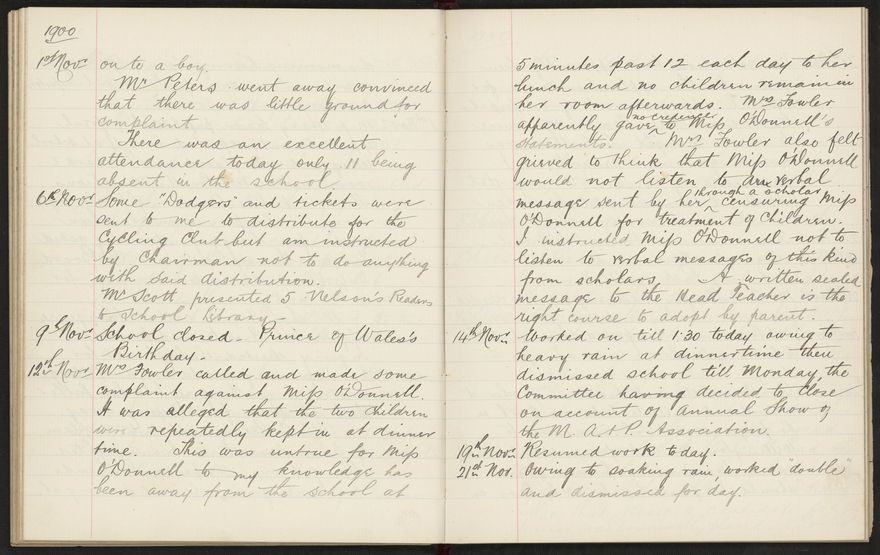 1900
1st Nov. on to a boy.
Mr Peters went away convinced
that there was little ground for
complaint
There was an excellent
attendance today only 11 being
absent in the school
6th Novr Some "Dodgers" and tickets were
sent to me to distribute for the
Cycling Club but am instructed
by Chairman not to do anything
with said distribution.
Mr Scott presented 5 Nelson's Readers
to School Library -
9th Novr School closed - Prince of Wales's
Birthday -
12th Novr Mrs Fowler called and made some
complaint against Miss O'Donnell.
It was alleged that the two children
were repeatedly kept in at dinner
time. This was untrue for Miss
O'Donnell to my knowledge has
been away from the school at
5 minutes past 12 each day to her
lunch and no children remain in
her room afterwards. Mrs Fowler
apparently gave no credence to Miss O'Donnell's
statements. Mrs Fowler also felt
grieved to think that Miss O'Donnell
would not listen to verbal
message sent by her through a scholar censuring Miss
O'Donnell for treatment of Children.
I instructed Miss O'Donnell not to
listen to verbal messages of this kind
from scholars. A written sealed
message to the Head Teacher is the
right course to adopt by parent.
14th Novr Worked on till 1.30 today owing to
heavy rain at dinnertime then
dismissed school till Monday, the
Committee having decided to close
on account of Annual Show of
the M. A & P. Association.
19th Novr Resumed work today.
21st Nov. Owing to soaking rain, worked "double"
and dismissed for day.